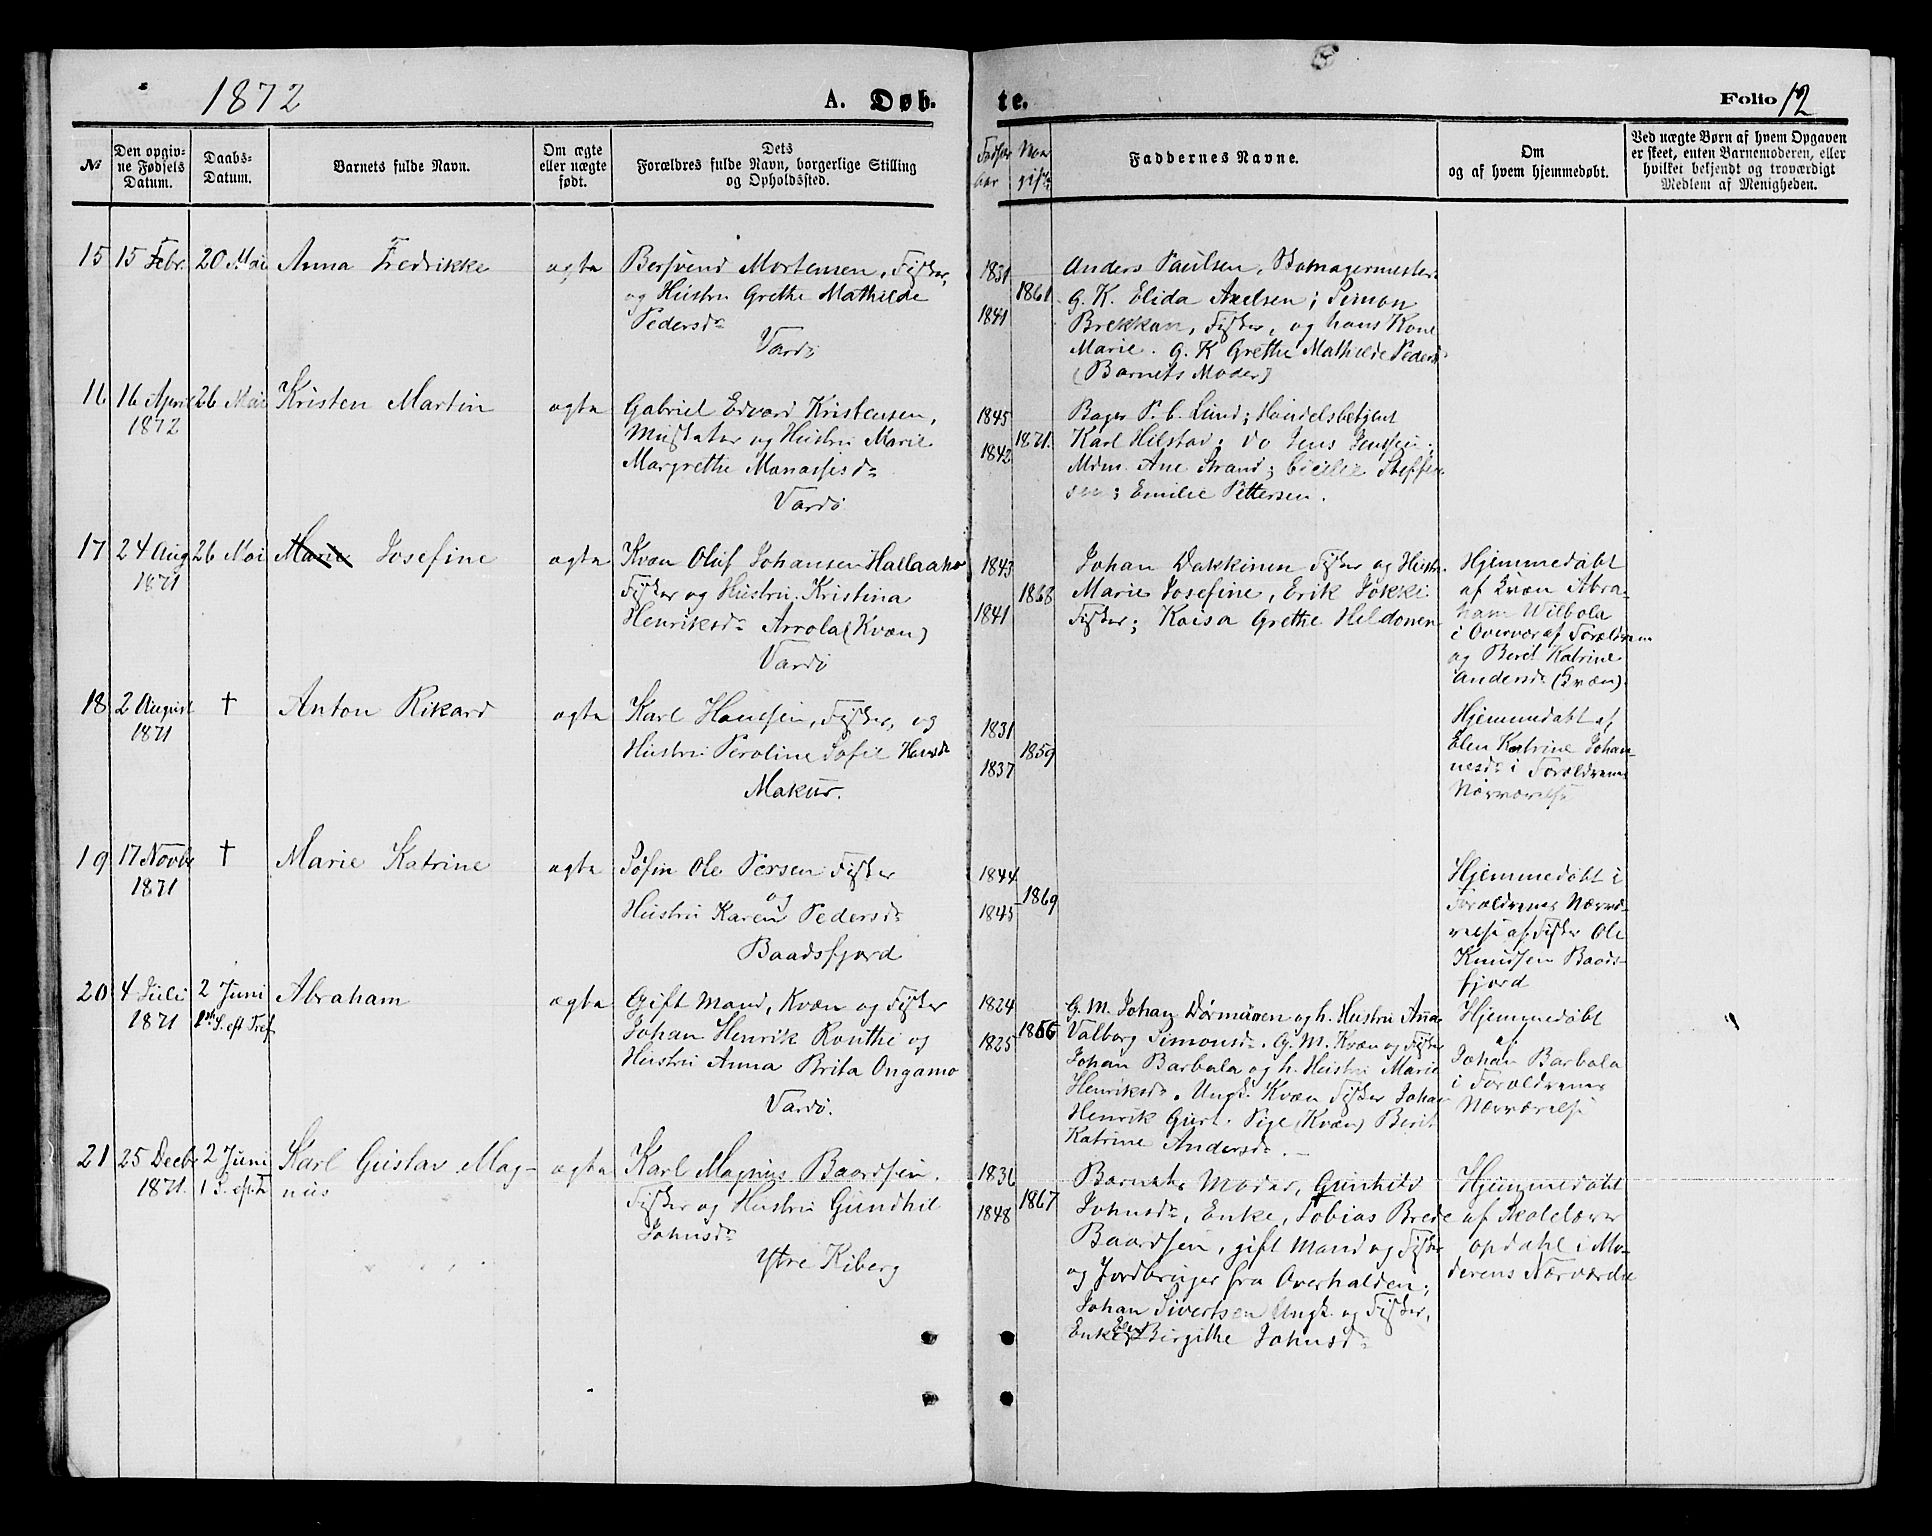 1872
A. Døb-
№
Den opgiv-
ne Fødsels
Datum.
Daabs-
Datum.
Barnets fulde Navn.
Om ægte
eller uægte
født.
Dets
Forældres fulde Navn, borgerlige Stilling
og Opholdssted.
15
15 Febr.
20 Mai
Anna Fredrikke
ægte
Bersvend Mortensen, Fisker,
og Hustru Grethe Mathilde
Pedersdr
Vardø
16
16 April
1872
26 Mai
Kristen Martin
ægte
Gabriel Edvard Kristensen,
Musketer og Hustru Marie
Margrethe Manassesdr
Vardø
17
24 Aug
1871
26 Mai
Marie Josefine
ægte
Kvæn Oluf Johansen Hallaaho
Fisker og Hustru Kristina
Henriksdr Arrola (Kvæn)
Vardø
18
2 August
1871
†
Anton Rikard
ægte
Karl Hansen, Fisker, og
Hustru Peroline Sofie Hansdr
Makur.
19
17 Novbr
1871
†
Marie Katrine
ægte
Søfin Ole Persen Fisker
og
Hustru Karen Pedersdr
Baadsfjord
20
4 Juli
1871
2 Juni
1ste S. eft Tref.
Abraham
ægte
Gift Mand, Kvæn og Fisker
Johan Henrik Routhi og
Hustru Anna Brita Ongamo
Vardø.
21
25 Decbr
1871.
2 Juni
1 S. eft. T
Karl Gustav Mag-
nus
ægte
Karl Magnus Baardsen,
Fisker og Hustru Gundhil
Johnsdr
Ytre Kiberg
te.
Folio 12
Fødsels
aar
Naar
gifte
Faddernes Navne.
Om
og af hvem hjemmedøbt.
Ved uægte Børn af hvem Opgaven
er skeet, enten Barnemoderen, eller
hvilket bekjendt og troværdigt
Medlem af Menigheden.
1831
1841
1861
Anders Paulsen, Skomagermester.
G. K. Elida Axelsen; Simon
Brekkan, Fisker, og hans Kone
Marie. G. K Grethe Mathilde Pedersdr
(Barnets Moder)
1845
1842
1871.
Bager P. C. Lund; Handelsbetjent
Karl Hilstad; do Jens Jenssen;
Mdm. Ane Strand; Cecilie Steffen
sen; Emilie Pettersen.
1843
1841
1868
Johan Dakkinen Fisker og Hustru
Marie Josefine, Erik Jokki
Fisker; Kaisa Grethe Heldonen
Hjemmedøbt
af Kvæn Abra-
ham Wilbola
i Overvær af Forældrene
og Berit Katrine
Andersdr (Kvæn).
1831
1837
1859
Hjemmedøbt af
Elen Katrine Johan
nesdr i Forældrenes
Nærværelse
1844
1845
1869
Hjemmedøbt i
Forældrenes Nærvæ-
relse af Fisker Ole
Knudsen Baads-
fjord
1824
1825
1856
G. M. Johan Dørmänen og h. Hustru Anna
Valborg Simonsdr. G. M. Kvæn og Fisker
Johan Barbala og h. Hustru Marie
Henriksdr. Ungk. Kvæn Fisker Johan
Henrik Giert. Pige (Kvæn) Berit
Katrine Andersdr. –
Hjemmedøbt
af
Johan Barbala
i Forældrenes
Nærværelse
1836
1848
1867
Barnets Moder, Gunhild
Johnsdr, Enke, Tobias Brede
Baardsen, gift Mand og Fisker
og Jordbruger fra Overhalden;
Johan Sivertsen Ungk. og Fisker,
Enke Elen Birgithe Johnsdr
Hjemmedøbt
af Skolelærer
Opdahl i Mo-
derens Nærværelse